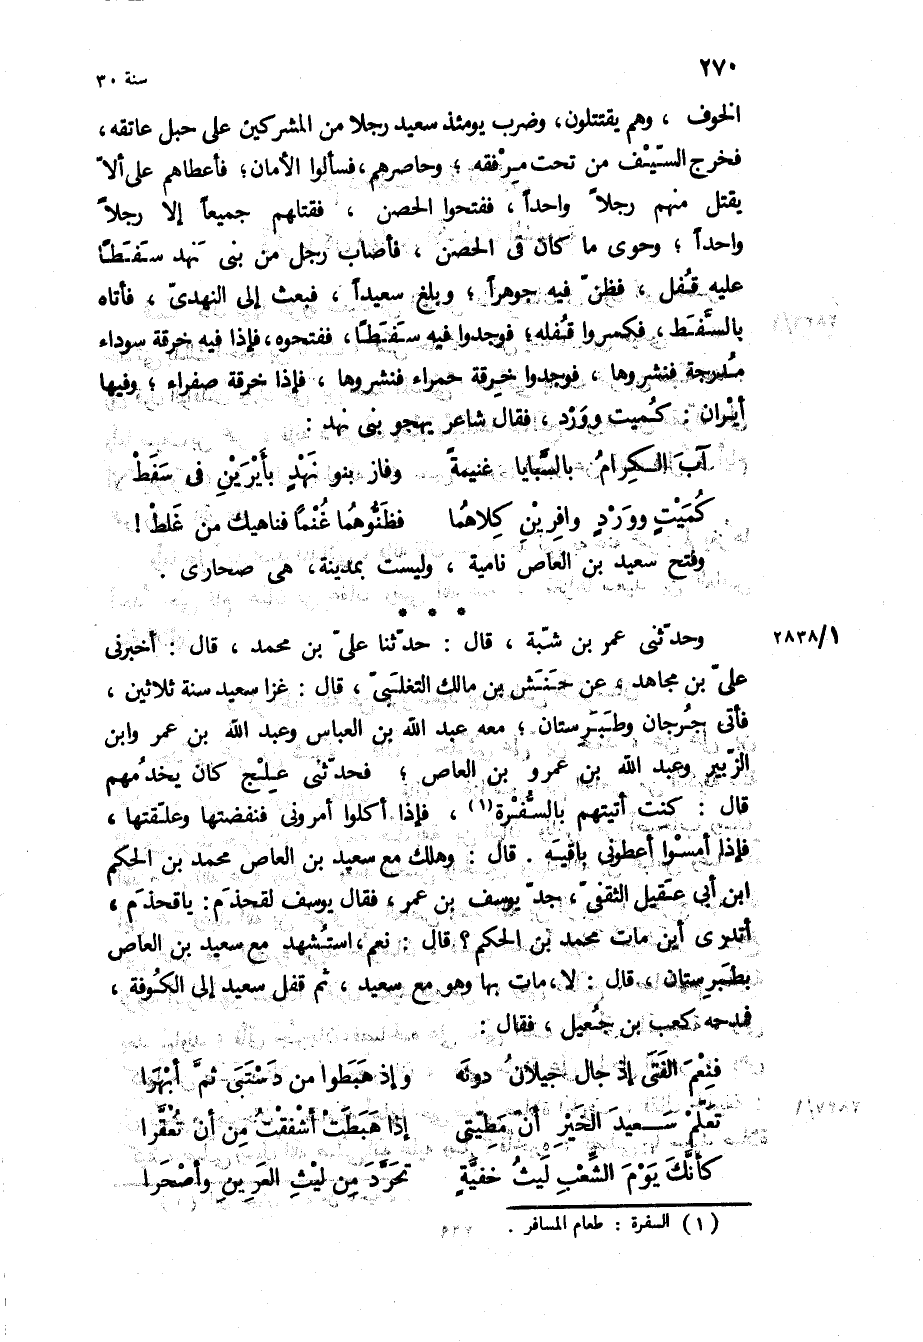 ٢٧٠
سنة ٣٠
الخوف ، وهم يقتتلون، وضرب يومئذ سعيد رجلا من المشركين على حبل عاتقه،
فخرج السّيْف من تحت مِرْفقه ؛ وحاصرهم، فسألوا الأمان؛ فأعطاهم على ألاّ
يقتل منهم رجلاً واحداً ، ففتحوا الحصن ، فقتلهم جميعاً إلا رجلاً
واحداً ؛ وحوى ما كان فى الحصن ، فأصاب رجل من بنى نَهد سَفَطًا
عليه قُفل ، فظنّ فيه جوهراً ؛ وبلغ سعيداً ، فبعث إلى النهدىّ ، فأتاه
بالسَّفَط، فكسروا قُفله؛ فوجدوا فيه سَفَطًا، ففتحوه، فإذا فيه خرقة سوداء
مُدرجة فنشروها ، فوجدوا خِرقة حمراء فنشروها ، فإذا خرقة صفراء ؛ وفيها
أيْران : كُميت ووَرْد ، فقال شاعر يهجو بنى نهد :
آبَ الكِرامُ بالسَّبايا غنيمةً وفاز بنو نَهْدٍ بأَيْرَيْنِ فى سَفَطْ
كُمَيْتٍ ووَرْدٍ وافِرِيْنِ كِلاهُما فظَنُّوهُما غُنْمًا فناهيك من غَلطْ !
وفتح سعيد بن العاص نامية ، وليست بمدينة، هى صحارى .
* * *
٢٨٣٨/١
وحدّثنى عمر بن شبّة ، قال : حدّثنا علىّ بن محمد ، قال : أخبرنى
علىّ بن مجاهد ، عن حَنَش بن مالك التغلبىّ ، قال : غزا سعيد سنة ثلاثين ،
فأتى جُرجان وطَبَرِستان ؛ معه عبد الله بن العباس وعبد الله بن عمر وابن
الزّبير وعبد الله بن عمرو بن العاص ؛ فحدّثنى عِلْج كان يخدُمهم
قال : كنت أتيتهم بالسُّفْرة(١) ، فإذا أكلوا أمرونى فنفضتها وعلّقتها ،
فإذا أمسوْا أعطونى باقيه . قال : وهلك مع سعيد بن العاص محمد بن الحكم
ابن أبي عَقيل الثقفىّ، جدّ يوسف بن عمر ، فقال يوسف لقحذَم: ياقحذَم ،
أتدرى أين مات محمد بن الحكم؟ قال : نعم، استُشهد مع سعيد بن العاص
بطَبَرِستان ، قال : لا، مات بها وهو مع سعيد ، ثم قفل سعيد إلى الكُوفة ،
فمدحه كعب بن جُعيل ، فقال :
فنِعْمَ الفَتَى إذ جال جيلانُ دونَه وإذ هَبَطوا من دَسْتَبَى ثمَّ أبْهَرَا
تعَلَّمْ سَعيدَ الخَيْرِ أنّ مَطِيَّتِى إذا هَبَطَتْ أشْفَقْتُ مِن أنْ تُعَقَّرا
كأنَّكَ يَوْمَ الشِّعْبِ لَيثُ خفيَّةٍ تحَرَّدَ مِن ليْثِ العَرِينِ وأصْحَرا
(١) السفرة : طعام المسافر .